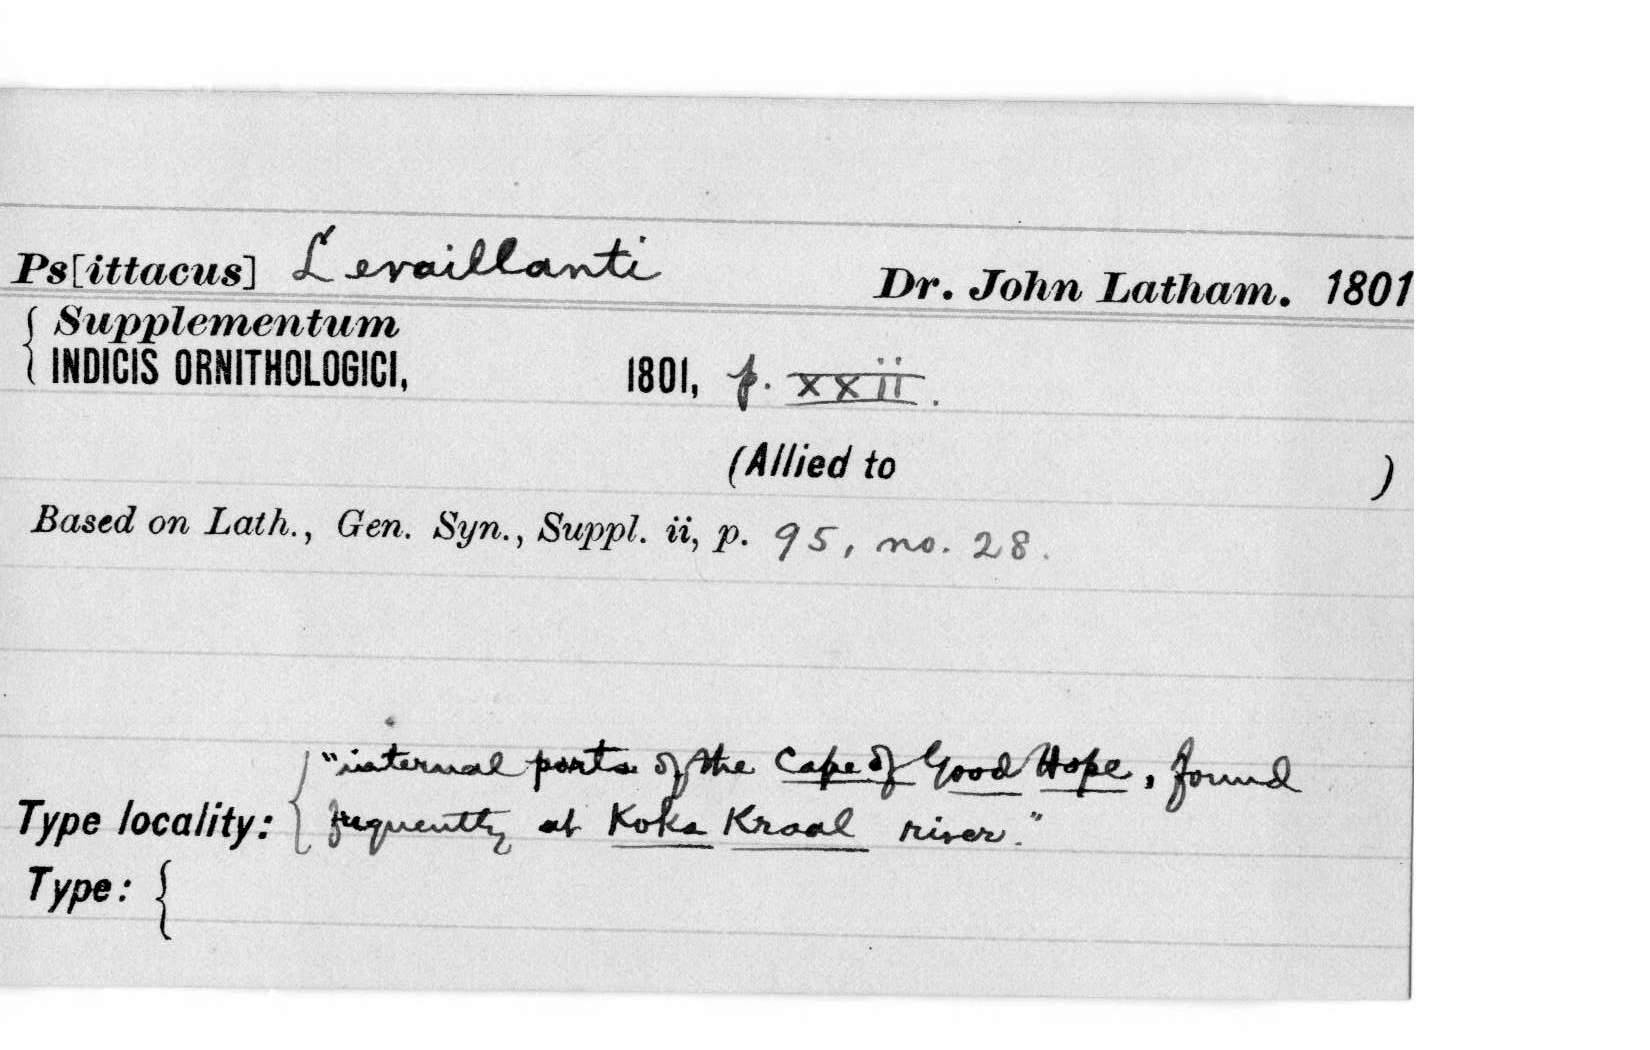 Ps[ittacus] Levaillanti Dr. John Latham. 1801
{ Supplementum
INDICIS ORNITHOLOGICI, 1801, p. xxii.
(Allied to )
Based on Lath., Gen. Syn., Suppl. ii, p. 95, no. 28.
"internal parts of the Cape of Good Hope, found
Type locality: { frequently at Koks Kraal river."
Type: {